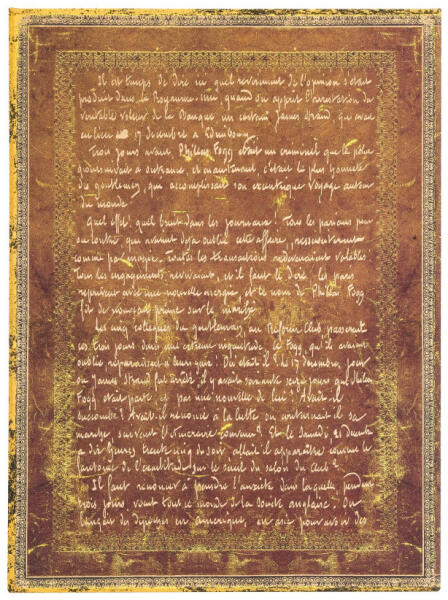 Il est temps de dire ici quel revirement de l'opinion s'était
produit dans le Royaume-uni, quand on apprit l'arrestation du
véritable voleur de la Banque un certain James Strand, qui avait
eu lieu le 17 décembre à Edimbourg.
Trois jours avant Phileas Fogg était un criminel que la police
poursuivait à outrance, et maintenant c'était le plus honnête
gentleman, qui accomplissait son excentrique voyage autour
du monde
Quel effet, quel bruit dans les journaux! Tous les parieurs pour
ou contre, qui avaient déjà oublié cette affaire, ressuscitèrent
comme par magie. toutes les transactions redevenaient valables
tous les engagements revivaient, et il faut le dire, les paris
reprirent avec une nouvelle énergie, et le nom de Phileas Fogg
fit de nouveau prime sur le marché.
Les cinq collègues du gentleman, au Reform Club passèrent
ces trois jours dans une certaine inquiétude, ce Fogg, qu'ils avaient
oublié reparaissait à leurs yeux! Où était-il? Le 17 décembre, jour
où James Strand fut arrêté il y avait soixante seize jours que Phileas
Fogg était parti et pas une nouvelle de lui? Avait-il
succombé? Avait-il renoncé à la lutte ou continuait-il sa
marche, suivant l'itinéraire convenu? Et le Samedi, 21 décembre
à dix heures trente cinq du soir allait il apparaître comme le
fantôme de l'exactitude sur le seuil du salon du club?
Il faut renoncer à peindre l'anxiété dans laquelle, pendant
trois jours, vécut tout ce monde de la société anglaise. On
lançait des dépêches en amérique, en asie pour avoir des